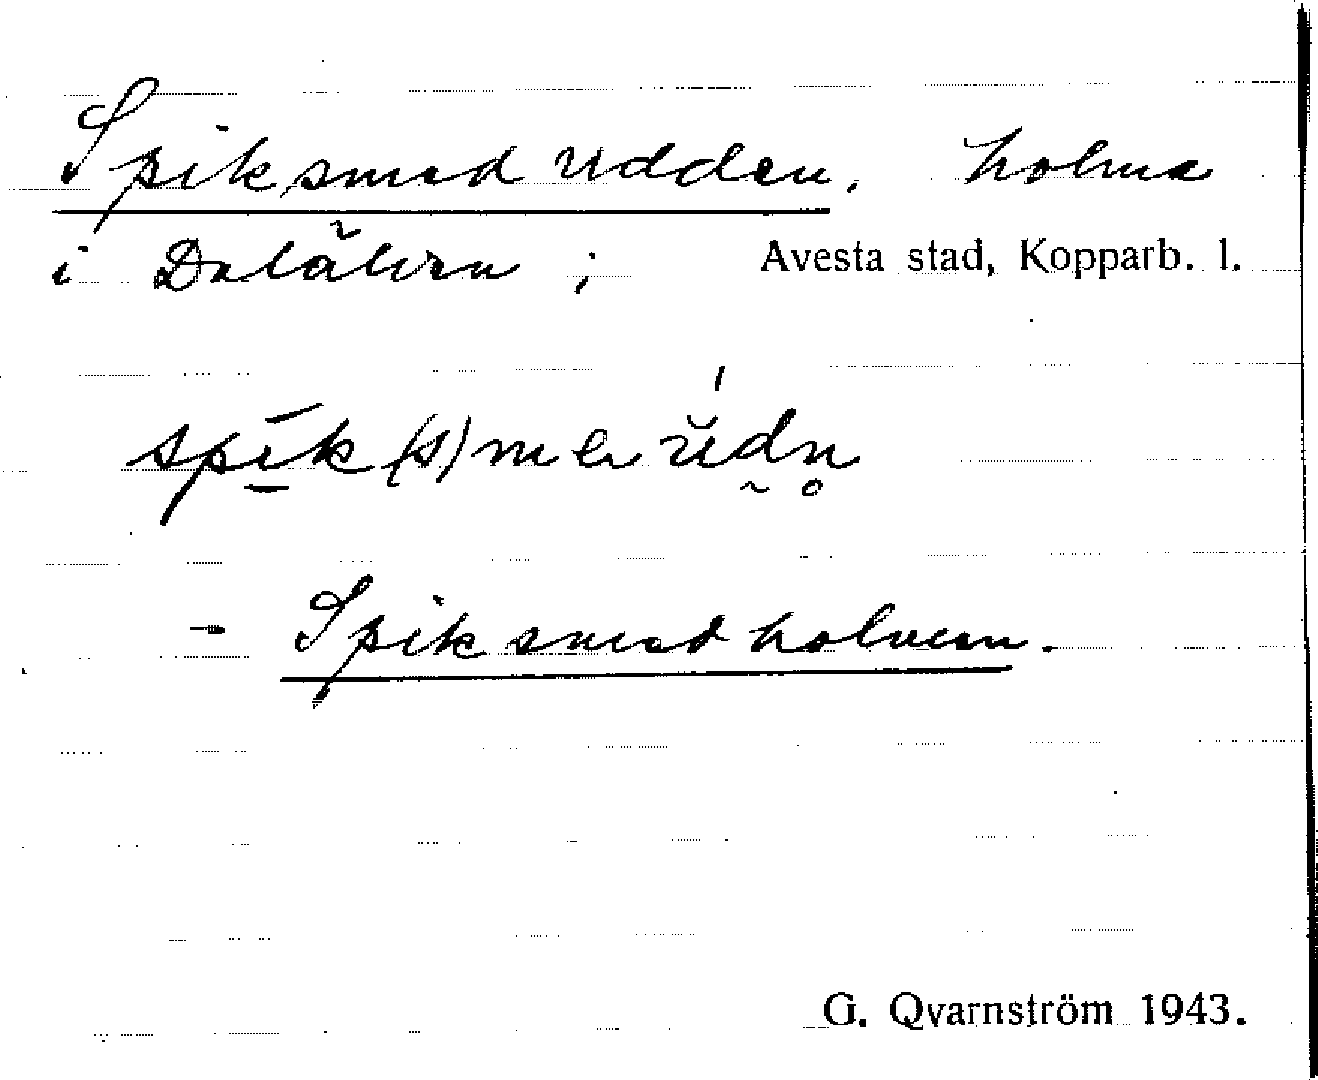 Spiksmedudden, holme
i Dalälven; Avesta stad, Kopparb. l.
- Spiksmedholmen.
G. Qvarnström 1943.